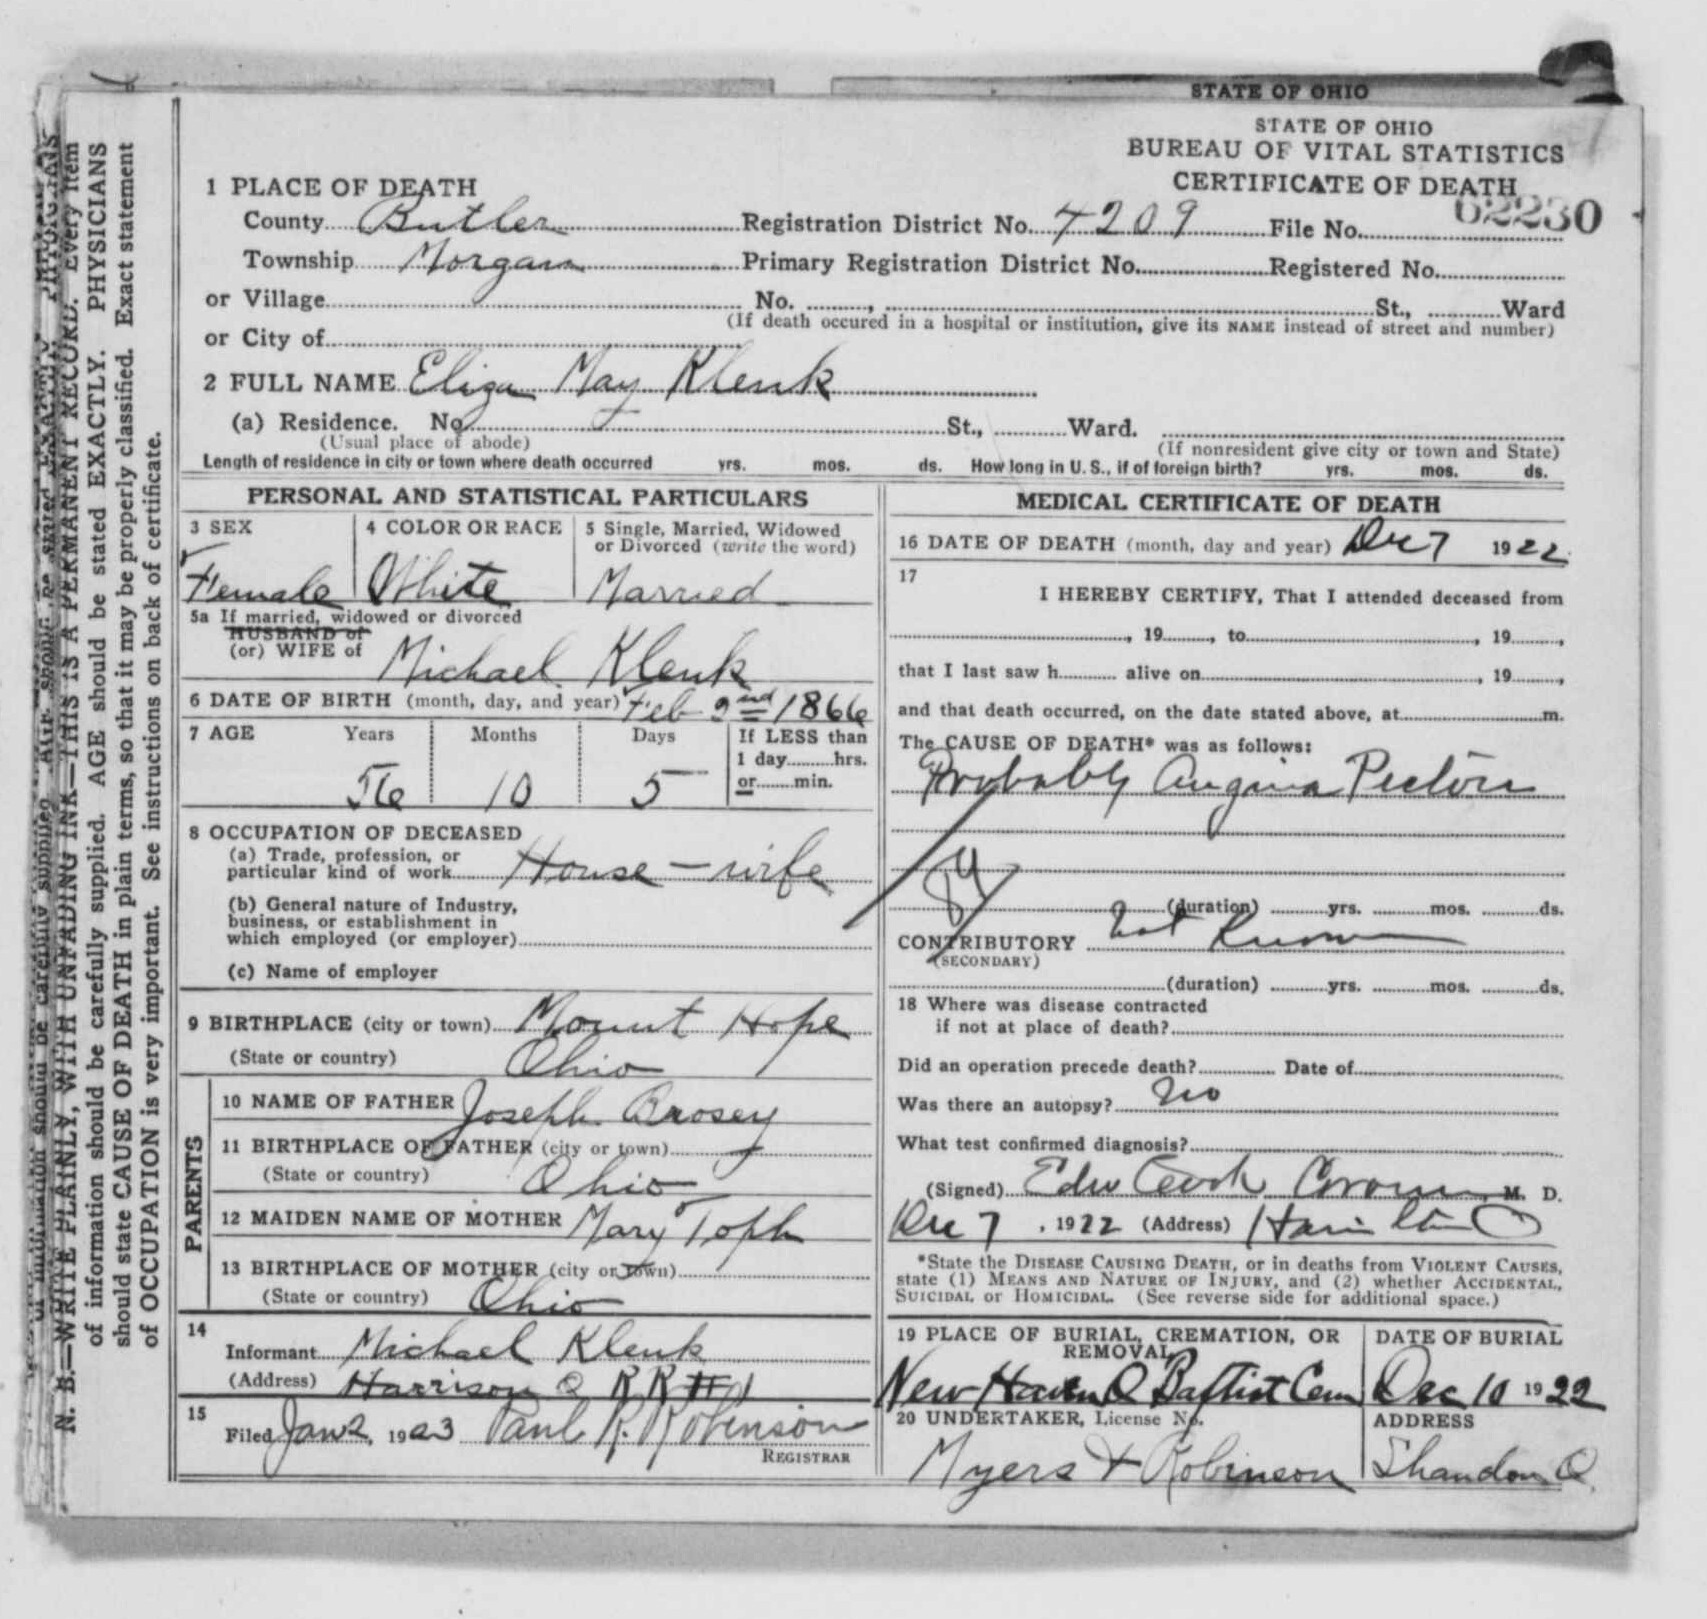 STATE OF OHIO
STATE OF OHIO
BUREAU OF VITAL STATISTICS
CERTIFICATE OF DEATH
62230
1 PLACE OF DEATH
County Butler Registration District No. 4209 File No.
Township Morgan Primary Registration District No. Registered No.
or Village No. , St., Ward
(If death occured in a hospital or institution, give its NAME instead of street and number)
or City of
2 FULL NAME Eliza May Klenk
(a) Residence. No St., Ward.
(Usual place of abode) (If nonresident give city or town and State)
Length of residence in city or town where death occurred yrs. mos. ds. How long in U. S., if of foreign birth? yrs. mos. ds.
PERSONAL AND STATISTICAL PARTICULARS
3 SEX 4 COLOR OR RACE 5 Single, Married, Widowed
or Divorced (write the word)
Female White Married
5a If married, widowed or divorced
HUSBAND of
(or) WIFE of Michael Klenk
6 DATE OF BIRTH (month, day, and year) Feb 2nd 1866
7 AGE Years Months Days If LESS than
1 day hrs.
56 10 5 or min.
8 OCCUPATION OF DECEASED
(a) Trade, profession, or
particular kind of work House-wife
(b) General nature of Industry,
business, or establishment in
which employed (or employer)
(c) Name of employer
9 BIRTHPLACE (city or town) Mount Hope
(State or country) Ohio
PARENTS
10 NAME OF FATHER Joseph Brosey
11 BIRTHPLACE OF FATHER (city or town)
(State or country) Ohio
12 MAIDEN NAME OF MOTHER Mary Toph
13 BIRTHPLACE OF MOTHER (city or town)
(State or country) Ohio
14
Informant Michael Klenk
(Address) Harrison O RR #1
15
Filed Jan 2, 1923 Paul R. Robinson
REGISTRAR
MEDICAL CERTIFICATE OF DEATH
16 DATE OF DEATH (month, day and year) Dec 7 1922
17
I HEREBY CERTIFY, That I attended deceased from
, 19 , to , 19 ,
that I last saw h alive on , 19 ,
and that death occurred, on the date stated above, at m.
The CAUSE OF DEATH* was as follows:
Probably Angina Pectoris
(duration) yrs. mos. ds.
CONTRIBUTORY Not Known
(SECONDARY)
(duration) yrs. mos. ds.
18 Where was disease contracted
if not at place of death?
Did an operation precede death? Date of
Was there an autopsy? No
What test confirmed diagnosis?
(Signed) Edw Cook Coroner, M. D.
Dec 7, 1922 (Address) Hamilton O
*State the DISEASE CAUSING DEATH, or in deaths from VIOLENT CAUSES,
state (1) MEANS AND NATURE OF INJURY, and (2) whether ACCIDENTAL,
SUICIDAL or HOMICIDAL. (See reverse side for additional space.)
19 PLACE OF BURIAL, CREMATION, OR DATE OF BURIAL
REMOVAL
New Haven O Baptist Cem Dec 10 1922
20 UNDERTAKER, License No. ADDRESS
Myers & Robinson Shandon O
N. B.—WRITE PLAINLY, WITH UNFADING INK—THIS IS A PERMANENT RECORD. Every item
of information should be carefully supplied. AGE should be stated EXACTLY. PHYSICIANS
should state CAUSE OF DEATH in plain terms, so that it may be properly classified. Exact statement
of OCCUPATION is very important. See instructions on back of certificate.